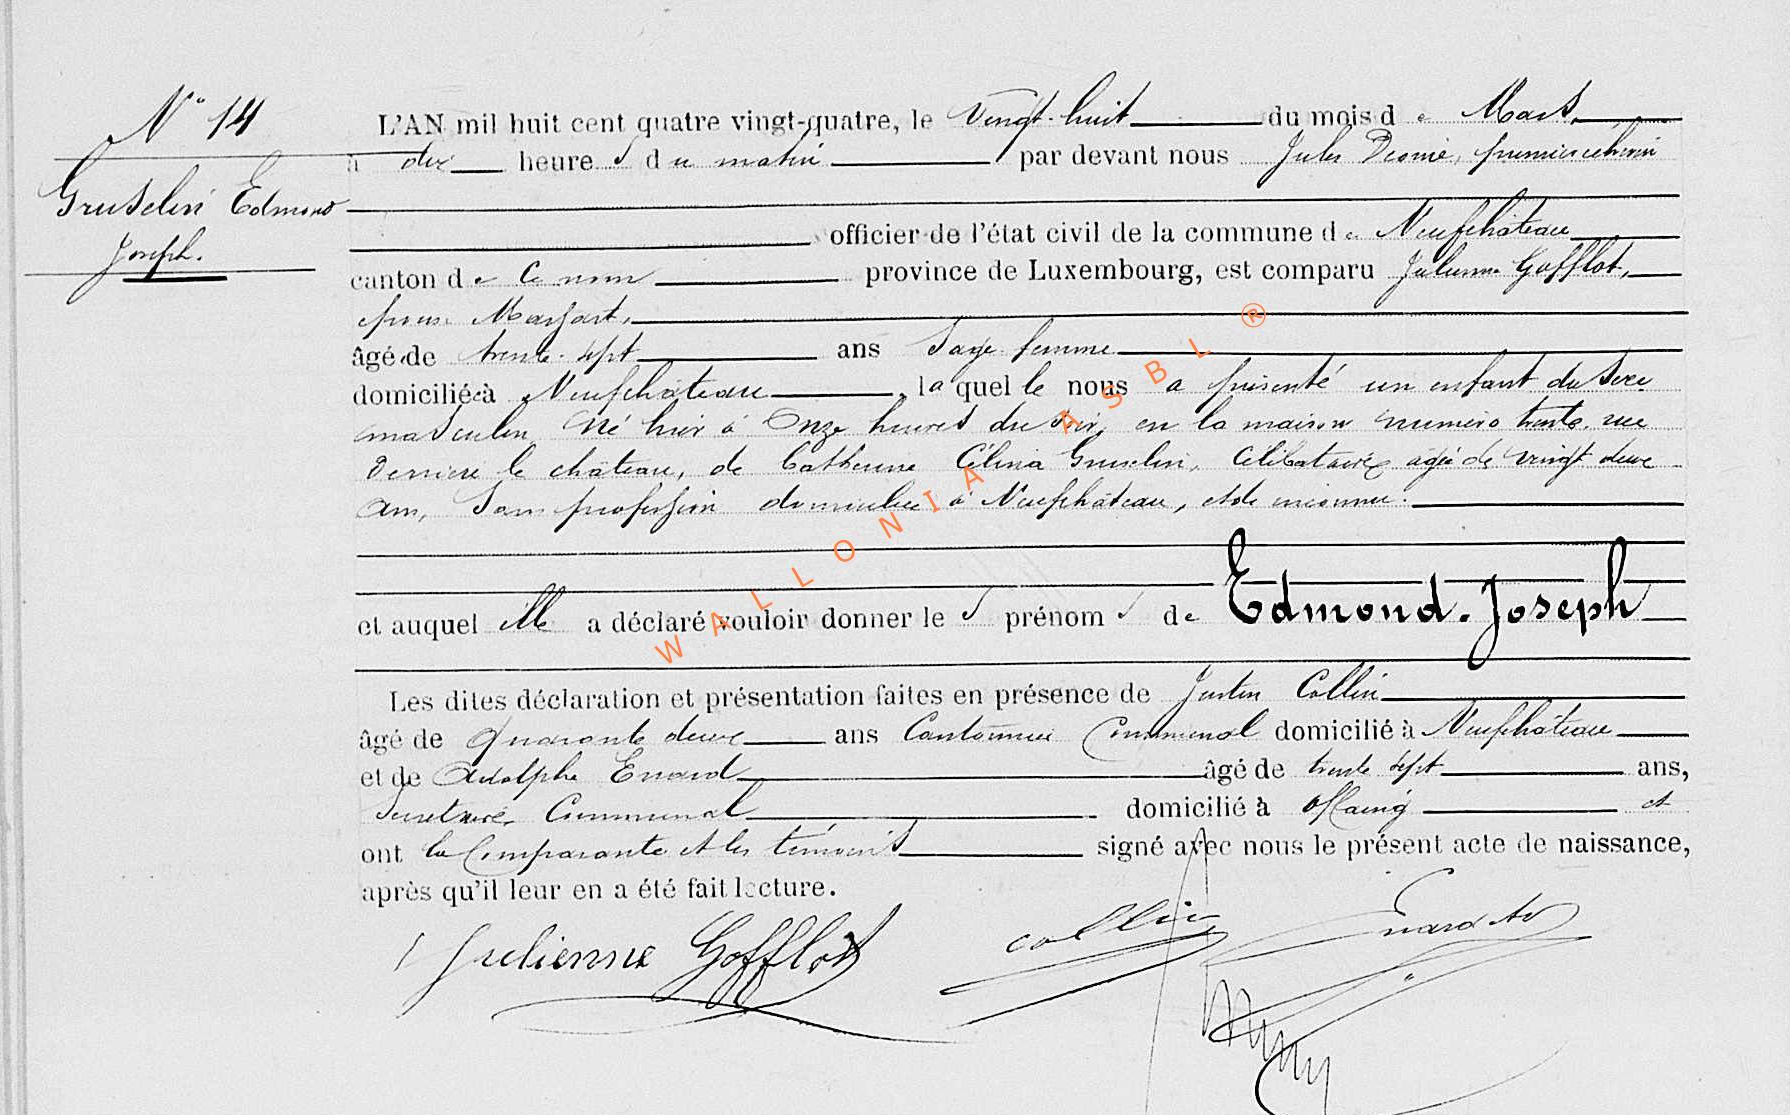 N° 14
Gruselin Edmond
Joseph.
L'AN mil huit cent quatre vingt-quatre, le Vingt-huit du mois de Mars,
à dix heures du matin par devant nous Jules premier échevin
officier de l'état civil de la commune de Neufchâteau
canton de Ce nom province de Luxembourg, est comparu Julienne Gofflot,
épouse Marjart,
âgée de trente-sept ans Sage femme
domiciliée à Neufchâteau, laquelle nous a présenté un enfant du Sexe
masculin Né hier à Onze heures du soir, en la maison numéro trente, rue
Derrière le château, de Catherine Célina Gruselin, Célibataire agée de vingt deux
ans, Sans profession domiciliée à Neufchâteau, et de inconnu.
et auquel elle a déclaré vouloir donner les prénoms de Edmond-Joseph
Les dites déclaration et présentation faites en présence de Justin Collin
âgé de Quarante deux ans Cantonnier Communal domicilié à Neufchâteau
et de Adolphe Enard âgé de trente sept ans,
Secrétaire Communal domicilié à Offaing et
ont la Comparante et les témoins signé avec nous le présent acte de naissance,
après qu'il leur en a été fait lecture.
Julienne Gofflot collin Enard Ad
WALLONIA ASBL ®